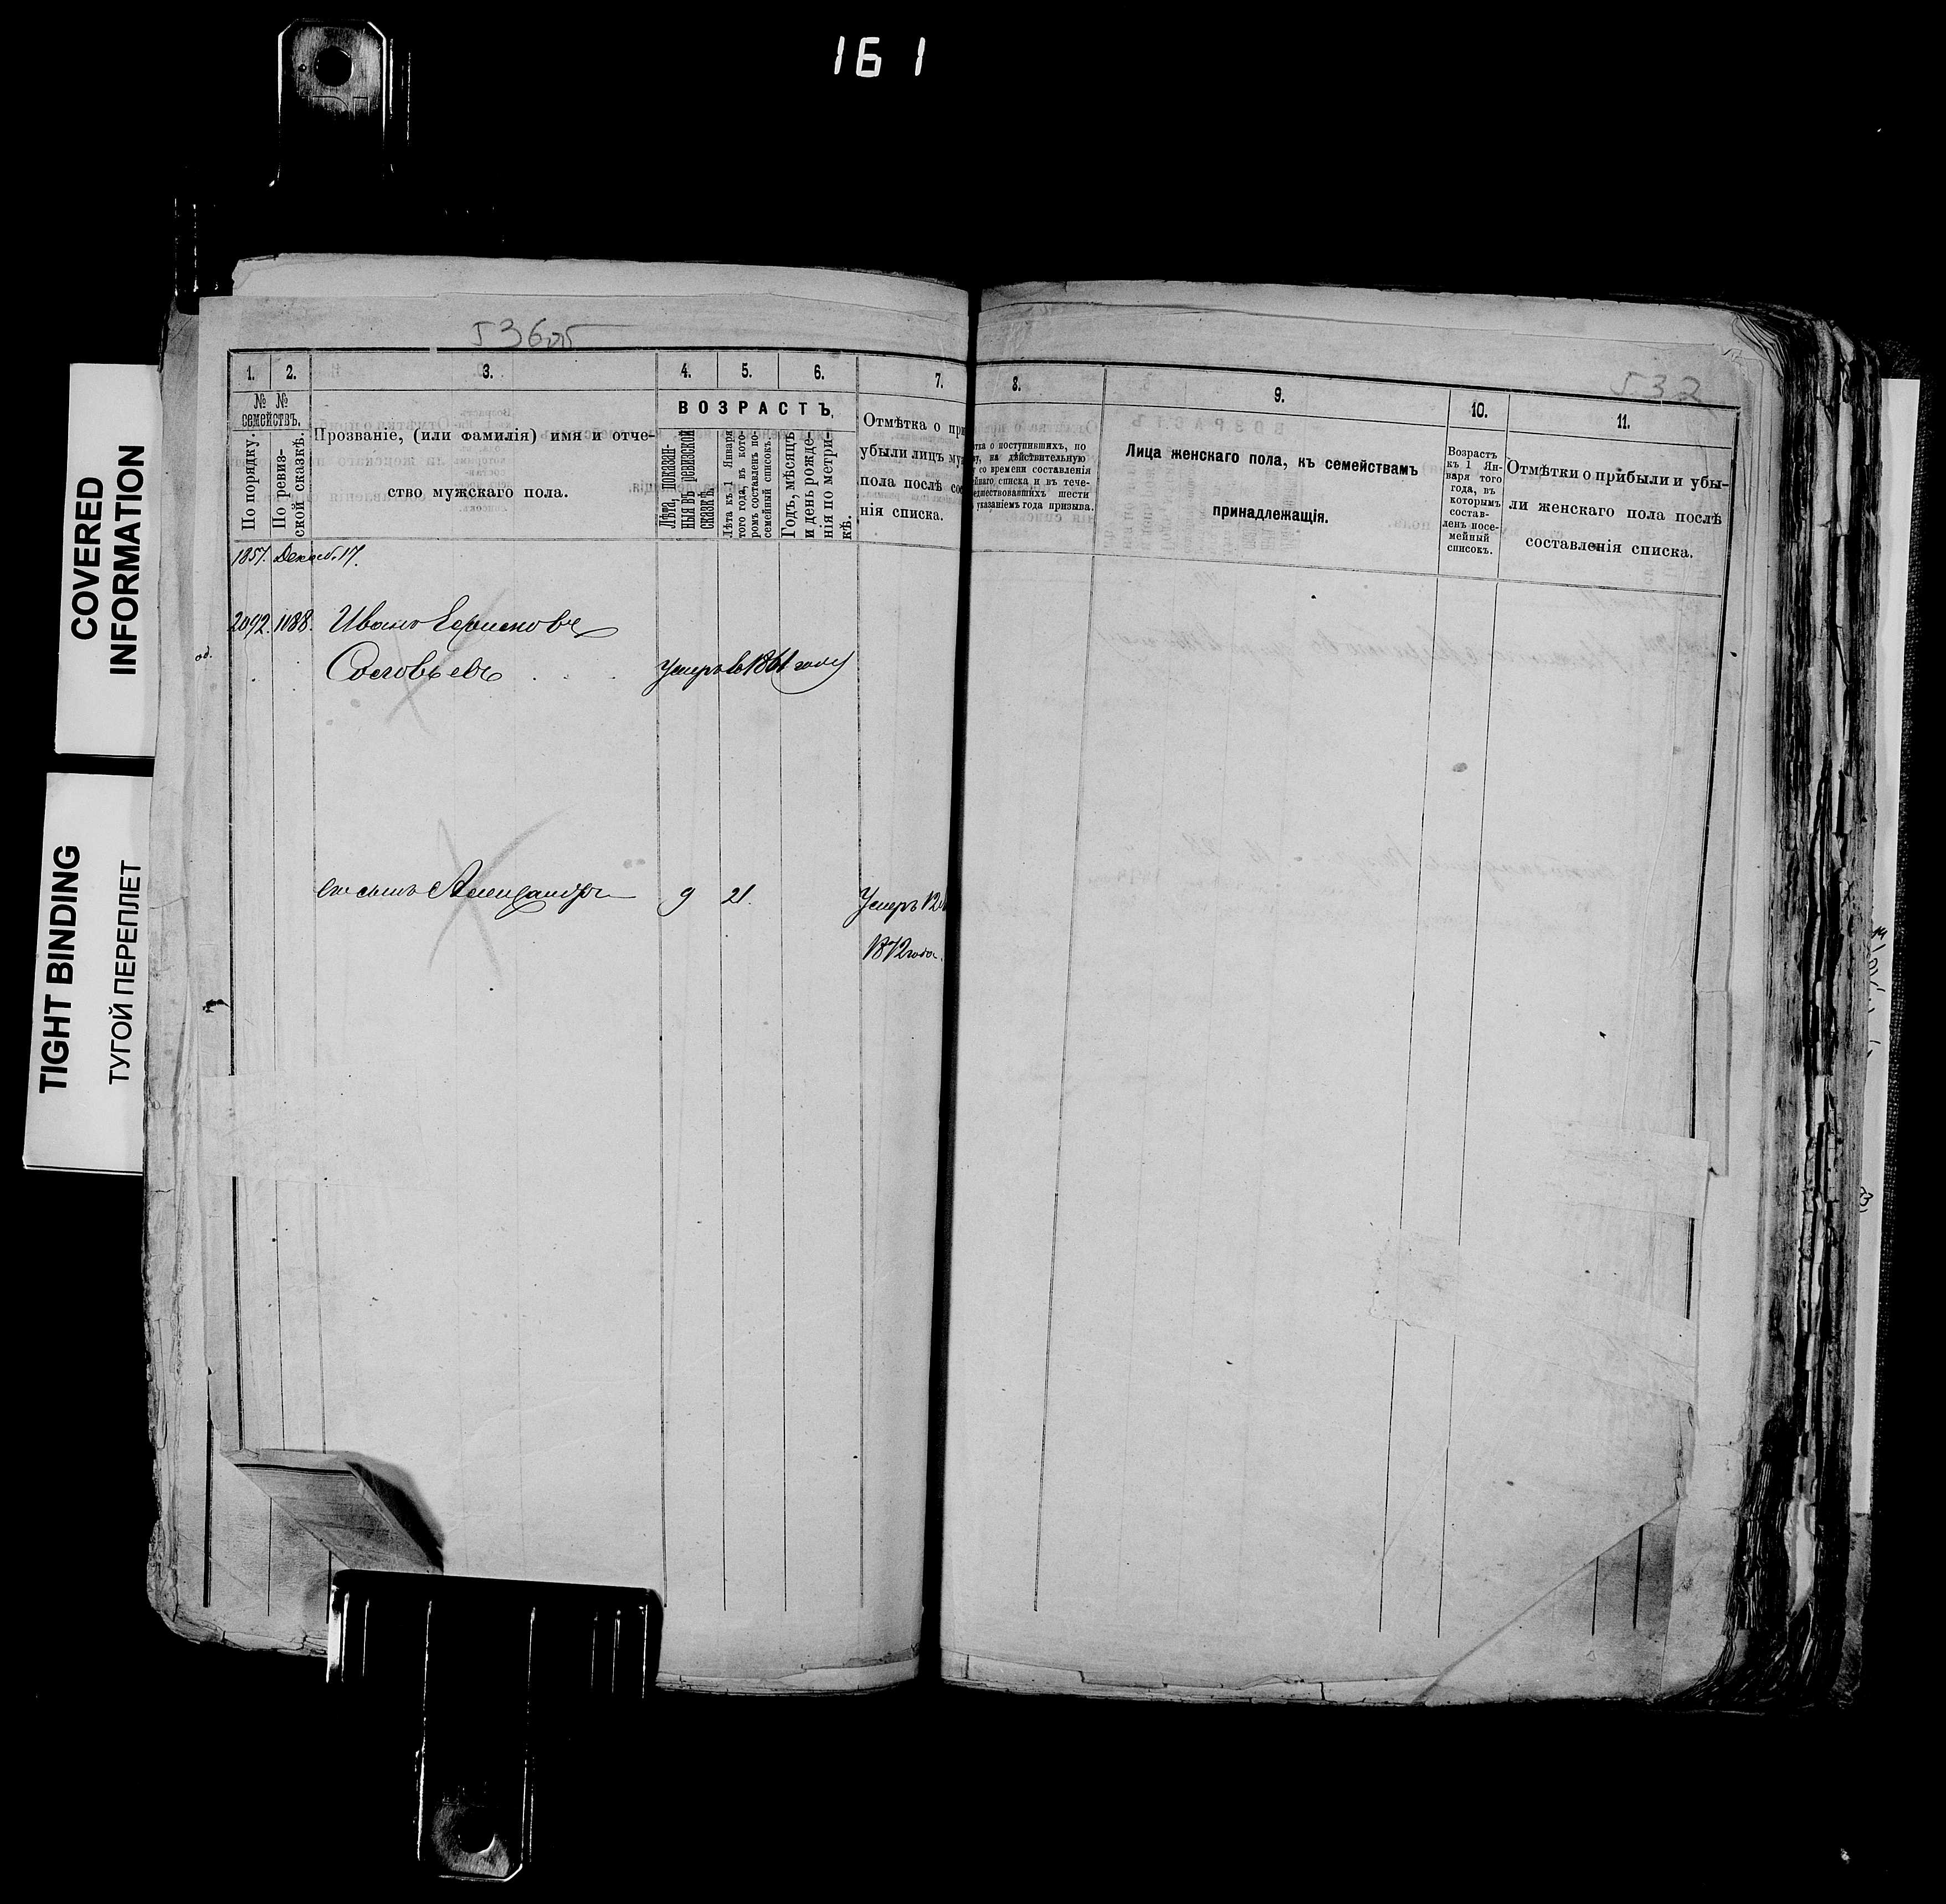 161
COVERED
INFORMATION
TIGHT BINDING
ТУГОЙ ПЕРЕПЛЕТ
536об
532
1. 2. 3. 4. 5. 6. 7.
№ №
семействъ.
По порядку.
По ревиз-
ской сказкѣ.
Прозваніе, (или фамилія) имя и отче-
ство мужскаго пола.
ВОЗРАСТЪ,
Лѣта, показан-
ныя въ ревизской
сказкѣ.
Лѣта къ 1 Января
того года, въ кото-
ромъ составленъ по-
семейный списокъ.
Годъ, мѣсяцъ
и день рожде-
нія по метри-
кѣ.
Отмѣтка о при
убыли лицъ му
пола послѣ со
нія списка.
1857. Декаб. 17.
2092. 1188. Иванъ
Соловьевъ умеръ въ 1861 году
Его сынъ Александръ 9 21. Умеръ 12
1872 года.
8. 9. 10. 11.
тка о поступившихъ, по
у, на дѣйствительную
со времени составленія
списка и въ тече-
едшествовавшихъ шести
указаніемъ года призыва.
Лица женскаго пола, къ семействамъ
принадлежащія.
Возрастъ
къ 1 Ян-
варя того
года, въ
которымъ
состав-
ленъ посе-
мейный
списокъ.
Отмѣтки о прибыли и убы-
ли женскаго пола послѣ
составленія списка.